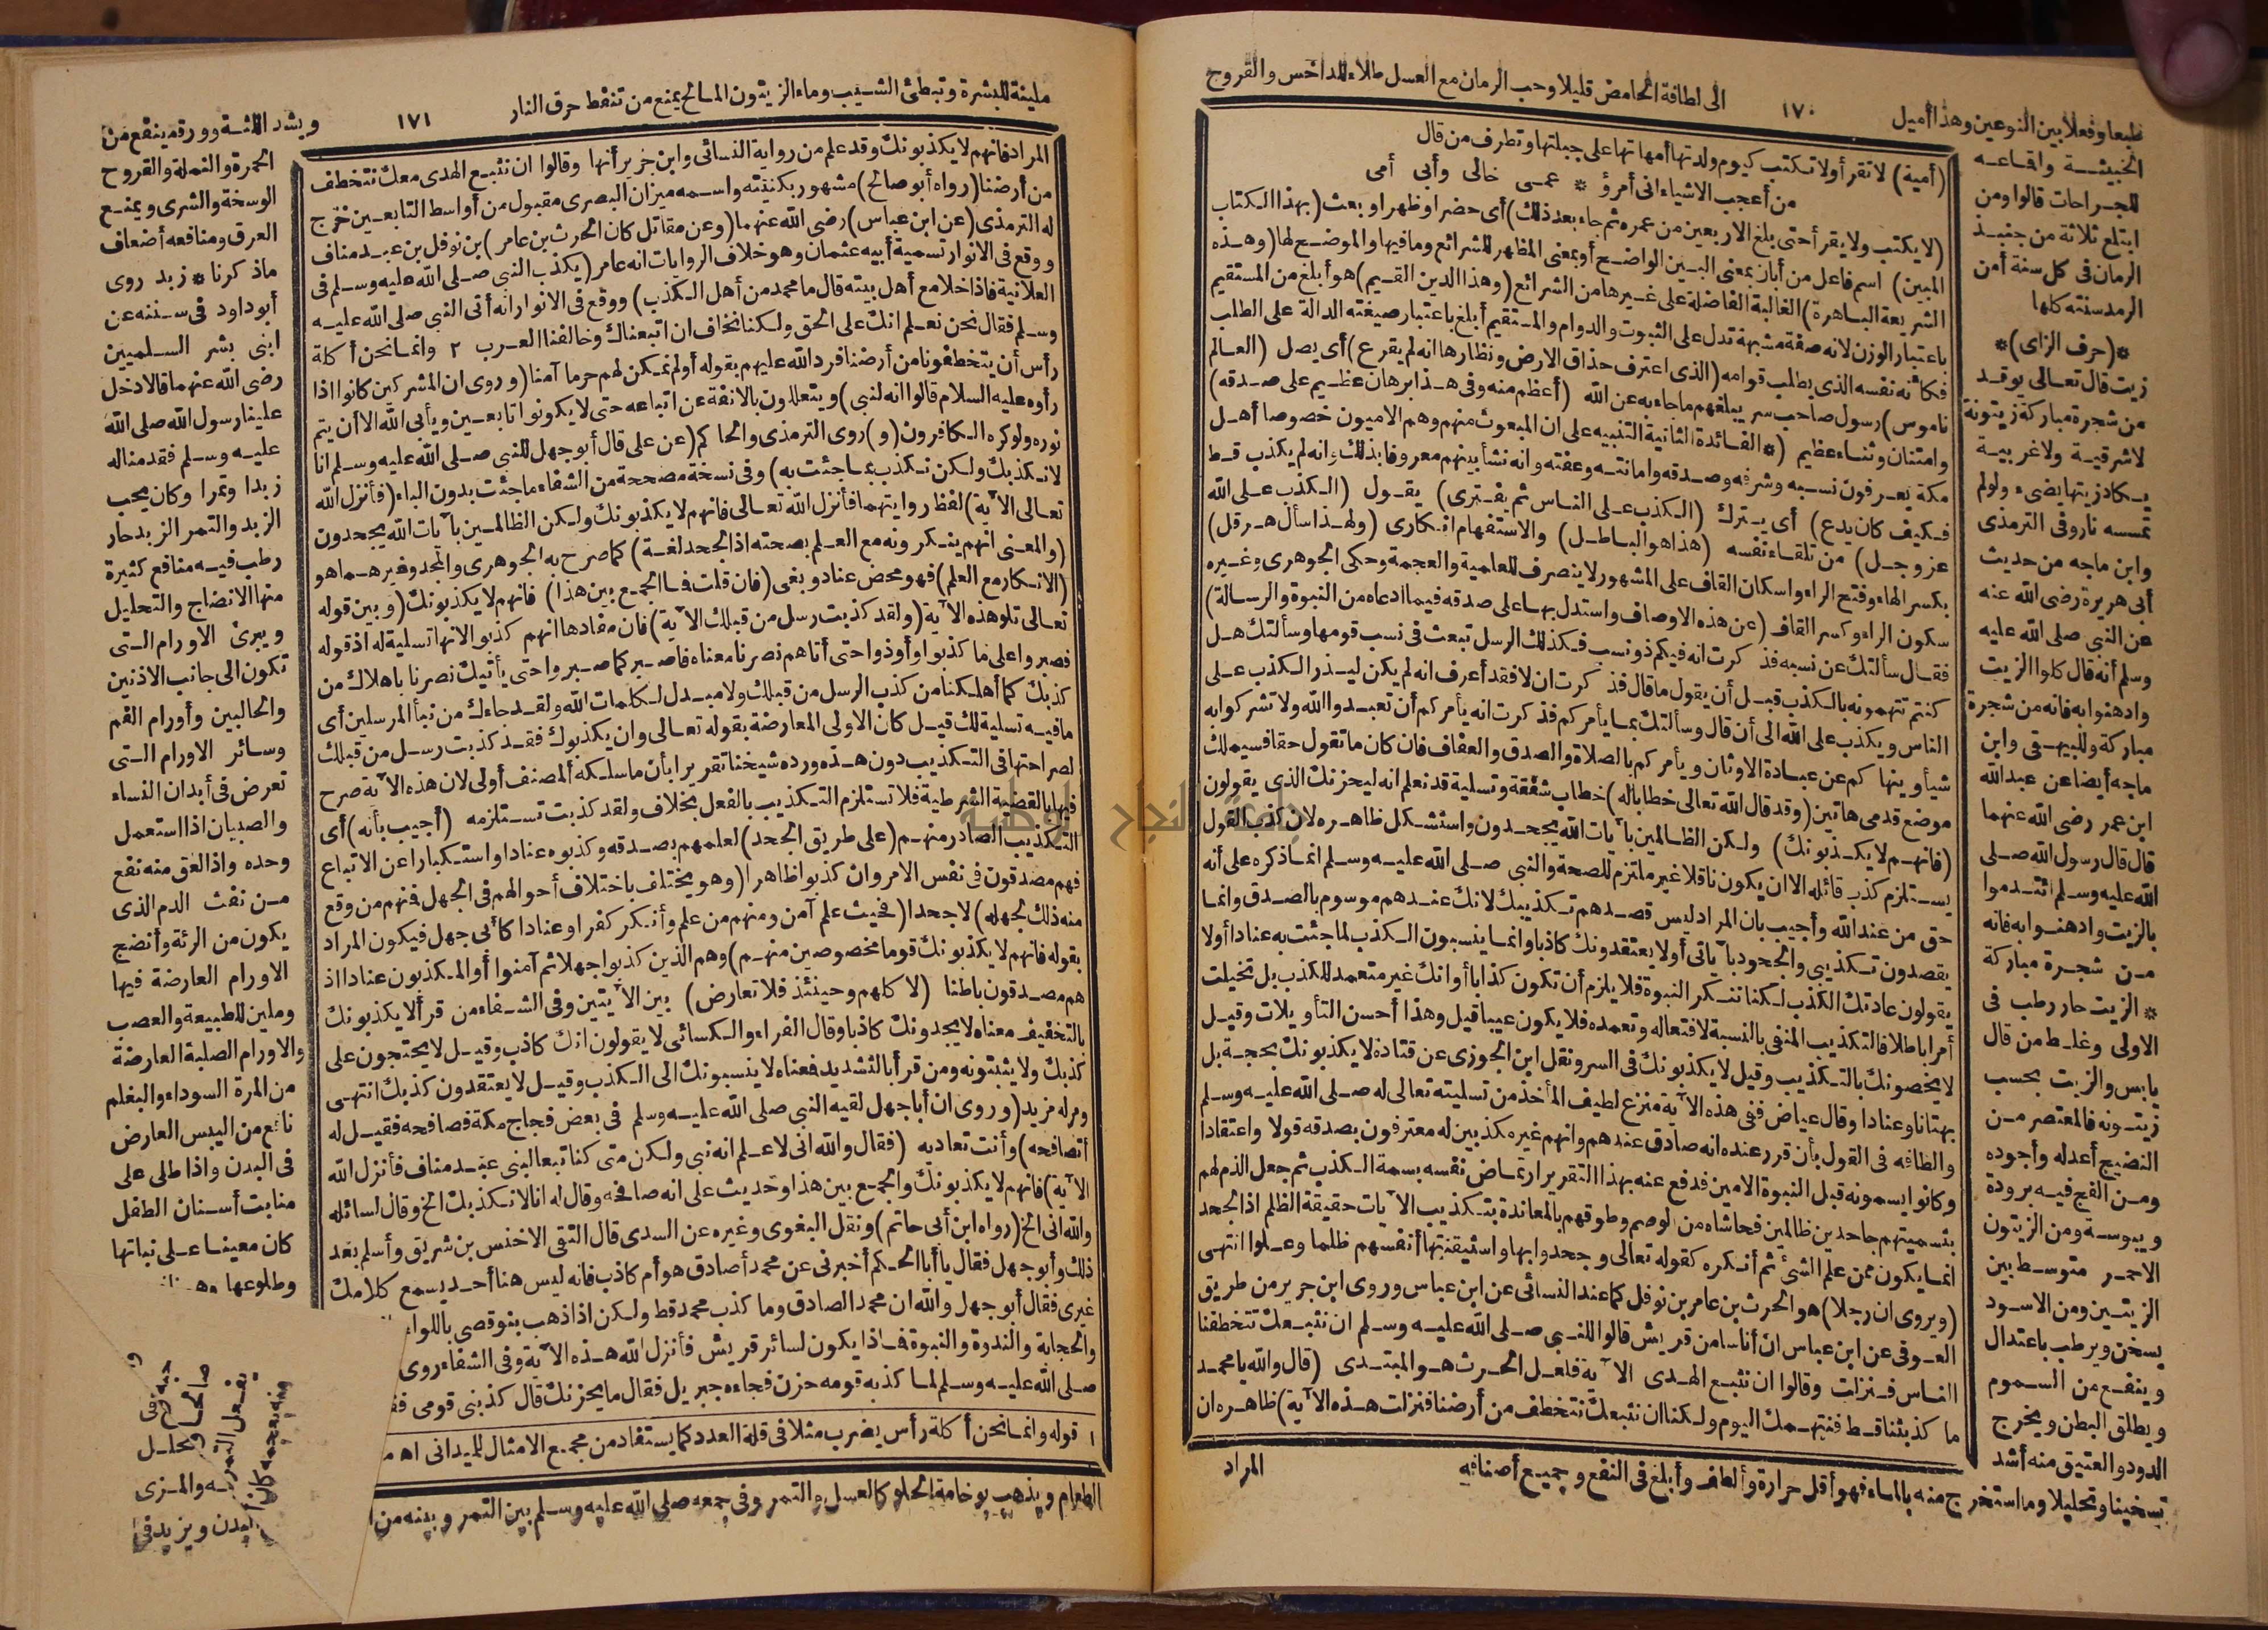 الى لطافة الحامض قليلا وحب الرمان مع العسل طلاء للداخس والقروح
١٧٠
طبعا وفعلا بين النوعين وهذا أميل
الخبيثة واقماعه
للجراحات قالوا ومن
ابتلع ثلاثة من جنبذ
الرمان فى كل سنة أمن
الرمد سنته كلها
*(حرف الزاى)*
زيت قال تعالى يوقد
من شجرة مباركة زيتونة
لا شرقية ولا غربية
يكاد زيتها يضىء ولو لم
تمسسه نار وفى الترمذى
وابن ماجه من حديث
أبى هريرة رضى الله عنه
عن النبى صلى الله عليه
وسلم أنه قال كلوا الزيت
وادهنوا به فانه من شجرة
مباركة وللبيهقى وابن
ماجه أيضا عن عبد الله
ابن عمر رضى الله عنهما
قال قال رسول الله صلى
الله عليه وسلم ائتدموا
بالزيت وادهنوا به فانه
من شجرة مباركة
* الزيت حار رطب فى
الاولى وغلط من قال
يابس والزيت بحسب
زيتونه فالمعتصر من
النضيج أعدله وأجوده
ومن الفج فيه برودة
ويبوسة ومن الزيتون
الاحمر متوسط بين
الزيتين ومن الاسود
يسخن ويرطب باعتدال
وينفع من السموم
ويطلق البطن ويخرج
الدود والعتيق منه أشد
تسخينا وتحليلا وما استخرج منه بالماء فهو أقل حرارة وألطف وأبلغ فى النفع وجميع أصنافه
(أمية) لا تقرأ ولا تكتب كيوم ولدتها أمهاتها على جبلتها وتطرف من قال
من أعجب الاشياء انى أمرؤ * عمى خالى وأبى أمى
(لا يكتب ولا يقرأ حتى بلغ الاربعين من عمره ثم جاء بعد ذلك) أى حضرا وظهرا وبعث (بهذا الكتاب
المبين) اسم فاعل من أبان بمعنى البين الواضح أو بمعنى المظهر للشرائع وما فيها والموضح لها (وهذه
الشريعة الباهرة) الغالبة الفاضلة على غيرها من الشرائع (وهذا الدين القيم) هو أبلغ من المستقيم
باعتبار الوزن لانه صفة مشبهة تدل على الثبوت والدوام والمستقيم أبلغ باعتبار صيغته الدالة على الطلب
فكأنه نفسه الذى يطلب قوامه (الذى اعترف حذاق الارض ونظارها انه لم يقرع) أى يصل (العالم
ناموس) رسول صاحب سر يبلغهم ما جاء به عن الله (أعظم منه وفى هذا برهان عظيم على صدقه)
وامتنان وثناء عظيم (* الفائدة الثانية التنبيه على ان المبعوث منهم وهم الاميون خصوصا أهل
مكة يعرفون نسبه وشرفه وصدقه وأمانته وعفته وانه نشأ بينهم معروفا بذلك وانه لم يكذب قط
فكيف كان يدع) أى يترك (الكذب على الناس ثم يفترى) يقول (الكذب على الله
عز وجل) من تلقاء نفسه (هذا هو الباطل) والاستفهام انكارى (ولهذا سأل هرقل)
بكسر الهاء وفتح الراء واسكان القاف على المشهور لا ينصرف للعلمية والعجمة وحكى الجوهرى وغيره
سكون الراء وكسر القاف (عن هذه الاوصاف واستدل بها على صدقه فيما ادعاه من النبوة والرسالة)
فقال سألتك عن نسبه فذكرت انه فيكم ذو نسب فكذلك الرسل تبعث فى نسب قومها وسألتك هل
كنتم تتهمونه بالكذب قبل أن يقول ما قال فذكرت ان لا فقد أعرف انه لم يكن ليذر الكذب على
الناس ويكذب على الله الى أن قال وسألتك بما يأمركم فذكرت انه يأمركم أن تعبدوا الله ولا تشركوا به
شيأ وينهاكم عن عبادة الاوثان ويأمركم بالصلاة والصدق والعفاف فان كان ما تقول حقا فسيملك
موضع قدمى هاتين (وقد قال الله تعالى خطابا له) خطاب شفقة وتسلية قد نعلم انه ليحزنك الذى يقولون
(فانهم لا يكذبونك) ولكن الظالمين بآيات الله يجحدون واستشكل ظاهره لان كذب القول
يستلزم كذب قائله الا ان يكون ناقلا غير ملتزم للصحة والنبى صلى الله عليه وسلم انما ذكره على أنه
حق من عند الله وأجيب بان المراد ليس قصدهم تكذيبك لانك عندهم موسوم بالصدق وانما
يقصدون تكذيبى والجحود بآياتى أو لا يعتقدونك كاذبا وانما ينسبون الكذب لما جئت به عنادا أولا
يقولون عادتك الكذب لكنا ننكر النبوة فلا يلزم أن تكون كذابا أو انك غير متعمد للكذب بل تخيلت
أمرا باطلا فالتكذيب المنفى بالنسبة لافتعاله وتعمده فلا يكون عيبا قيل وهذا أحسن التأويلات وقيل
لا يخصونك بالتكذيب وقيل لا يكذبونك فى السر ونقل ابن الجوزى عن قتادة لا يكذبونك بحجة بل
بهتانا وعنادا وقال عياض ففى هذه الآية منزع لطيف المأخذ من تسليته تعالى له صلى الله عليه وسلم
والطافه فى القول بأن قرر عنده انه صادق عندهم وانهم غير مكذبين له معترفون بصدقه قولا واعتقادا
وكانوا يسمونه قبل النبوة الامين فدفع عنه بهذا التقرير ارتماض نفسه بسمة الكذب ثم جعل الذم لهم
بتسميتهم جاحدين ظالمين فحاشاه من الوصم وطوقهم بالمعاندة بتكذيب الآيات حقيقة الظلم اذ الجحد
انما يكون ممن علم الشئ ثم أنكره كقوله تعالى وجحدوا بها واستيقنتها أنفسهم ظلما وعلوا انتهى
(ويروى ان رجلا) هو الحرث بن عامر بن نوفل كما عند النسائى عن ابن عباس وروى ابن جرير من طريق
العوفى عن ابن عباس ان أناسا من قريش قالوا للنبى صلى الله عليه وسلم ان نتبعك تتخطفنا
الناس فنزلت وقالوا ان نتبع الهدى الآية فلعل الحرث هو المبتدى (قال والله يا محمد
ما كذبتنا قط فنتهمك اليوم ولكنا ان نتبعك نتخطف من أرضنا فنزلت هذه الآية) ظاهره ان
المراد
ملينة للبشرة وتبطئ الشيب وماء الزيتون المالح يمنع من تنفط حرق النار
١٧١
ويشد اللثة وورقه ينفع من
الحمرة والنملة والقروح
الوسخة والشرى ويمنع
العرق ومنافعه أضعاف
ماذكرنا * زبد روى
أبو داود فى سننه عن
ابنى بشر السلميين
رضى الله عنهما قالا دخل
علينا رسول الله صلى الله
عليه وسلم فقدمنا له
زبدا وتمرا وكان يحب
الزبد والتمر الزبد حار
رطب فيه منافع كثيرة
منها الانضاج والتحليل
ويبرئ الاورام التى
تكون الى جانب الاذنين
والحالبين وأورام الفم
وسائر الاورام التى
تعرض فى أبدان النساء
والصبيان اذا استعمل
وحده واذا لعق منه نفع
من نفث الدم الذى
يكون من الرئة وأنضج
الاورام العارضة فيها
وملين للطبيعة والعصب
والاورام الصلبة العارضة
من المرة السوداء والبلغم
نافع من اليبس العارض
فى البدن واذا طلى على
منابت أسنان الطفل
كان معينا على نباتها
وطلوعها
المراد فانهم لا يكذبونك وقد علم من رواية النسائى وابن جرير أنها وقالوا ان نتبع الهدى معك نتخطف
من أرضنا (رواه أبو صالح) مشهور بكنيته واسمه ميزان البصرى مقبول من أواسط التابعين خرج
له الترمذى (عن ابن عباس) رضى الله عنهما (وعن مقاتل كان الحرث بن عامر) بن نوفل بن عبد مناف
ووقع فى الانوار تسمية أبيه عثمان وهو خلاف الروايات انه عامر (يكذب النبى صلى الله عليه وسلم فى
العلانية فاذا خلا مع أهل بيته قال ما محمد من أهل الكذب) ووقع فى الانوار انه أتى النبى صلى الله عليه
وسلم فقال نحن نعلم انك على الحق ولكنا نخاف ان اتبعناك وخالفنا العرب ٢ وانما نحن أكلة
رأس أن يتخطفونا من أرضنا فرد الله عليهم بقوله أولم نمكن لهم حرما آمنا (وروى ان المشركين كانوا اذا
رأوه عليه السلام قالوا انه لنبى) ويتعللون بالانفة عن اتباعه حتى لا يكونوا تابعين ويأبى الله الا أن يتم
نوره ولو كره الكافرون (و) روى الترمذى والحاكم (عن على قال أبو جهل للنبى صلى الله عليه وسلم انا
لا نكذبك ولكن نكذب بما جئت به) وفى نسخة مصححة من الشفاء ما جئت بدون الباء (فأنزل الله
تعالى الآية) لفظ روايتهما فأنزل الله تعالى فانهم لا يكذبونك ولكن الظالمين بآيات الله يجحدون
(والمعنى انهم ينكرونه مع العلم بصحته اذ الجحد لغة) كما صرح به الجوهرى والمجد وغيرهما هو
(الانكار مع العلم) فهو محض عناد وبغى (فان قلت فما الجمع بين هذا) فانهم لا يكذبونك (وبين قوله
تعالى تلو هذه الآية (ولقد كذبت رسل من قبلك الآية) فان مفادها انهم كذبوا لانها تسلية له اذ قوله
فصبروا على ما كذبوا وأوذوا حتى أتاهم نصرنا معناه فاصبر كما صبروا حتى يأتيك نصرنا باهلاك من
كذبك كما أهلكنا من كذب الرسل من قبلك ولا مبدل لكلمات الله ولقد جاءك من نبأ المرسلين أى
ما فيه تسلية لك قيل كان الاولى المعارضة بقوله تعالى وان يكذبوك فقد كذبت رسل من قبلك
لصراحتها فى التكذيب دون هذه ورده شيخنا تقريرا بأن ما سلكه المصنف أولى لان هذه الآية صرح
فيها بالقضية الشرطية فلا تستلزم التكذيب بالفعل بخلاف ولقد كذبت تستلزمه (أجيب بأنه) أى
التكذيب الصادر منهم (على طريق الجحد) لعلمهم بصدقه وكذبوه عنادا واستكبارا عن الاتباع
فهم مصدقون فى نفس الامر وان كذبوا ظاهرا (وهو يختلف باختلاف أحوالهم فى الجهل فمنهم من وقع
منه ذلك لجهله) لا جحدا (فحيث علم آمن ومنهم من علم وأنكر كفرا وعنادا كأبى جهل فيكون المراد
بقوله فانهم لا يكذبونك قوما مخصوصين منهم) وهم الذين كذبوا جهلا ثم آمنوا أو المكذبون عنادا اذ
هم مصدقون باطنا (لا كلهم وحينئذ فلا تعارض) بين الآيتين وفى الشفاء من قرأ لا يكذبونك
بالتخفيف معناه لا يجدونك كاذبا وقال الفراء والكسائى لا يقولون انك كاذب وقيل لا يحتجون على
كذبك ولا يثبتونه ومن قرأ بالتشديد فمعناه لا ينسبونك الى الكذب وقيل لا يعتقدون كذبك انتهى
ومر له مزيد (وروى ان أبا جهل لقيه النبى صلى الله عليه وسلم فى بعض فجاج مكة فصافحه فقيل له
أتصافحه) وأنت تعاديه (فقال والله انى لاعلم انه نبى ولكن متى كنا تبعا لبنى عبد مناف فأنزل الله
الآية) فانهم لا يكذبونك والجمع بين هذا وحديث على انه صافحه وقال له انا لا نكذبك الخ وقال لسائله
والله انى الخ (رواه ابن أبى حاتم) ونقل البغوى وغيره عن السدى قال التقى الاخنس بن شريق وأسلم بعد
ذلك وأبو جهل فقال يا أبا الحكم أخبرنى عن محمد أصادق هو أم كاذب فانه ليس هنا أحد يسمع كلامك
غيرى فقال أبو جهل والله ان محمدا لصادق وما كذب محمد قط ولكن اذا ذهب بنو قصى باللواء
والحجابة والندوة والنبوة فماذا يكون لسائر قريش فأنزل الله هذه الآية وفى الشفاء روى
صلى الله عليه وسلم لما كذبه قومه حزن فجاءه جبريل فقال ما يحزنك قال كذبنى قومى
١ قوله وانما نحن أكلة رأس يضرب مثلا فى قلة العدد كما يستفاد من مجمع الامثال للميدانى اه
الطعام ويذهب بوخامته الحلو كالعسل والتمر وفى جمعه صلى الله عليه وسلم بين التمر وبينه من
يحلل
والمزى
البدن ويزيد فى
جامعة النجاح الوطنية